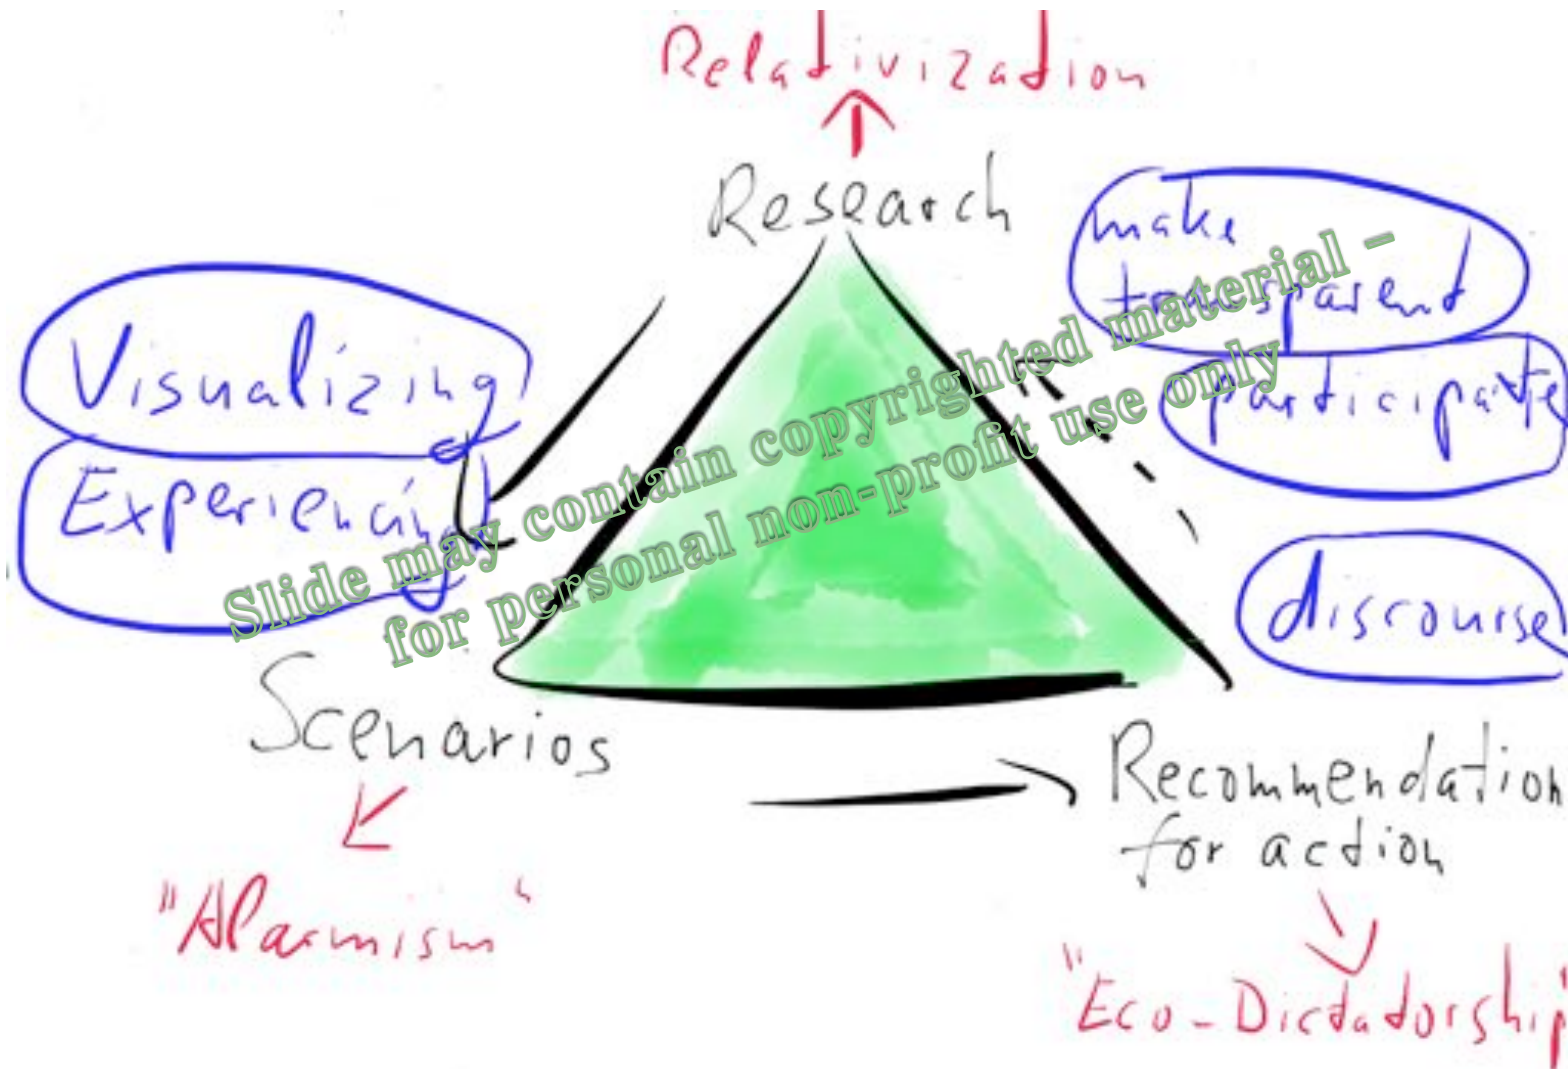 Relativization
Research
make
transparent
participate
discourse
Visualizing
Experiencing
Slide may contain copyrighted material -
for personal non-profit use only
Scenarios
Recommendation
for action
"Alarmism"
"Eco-Dictatorship"